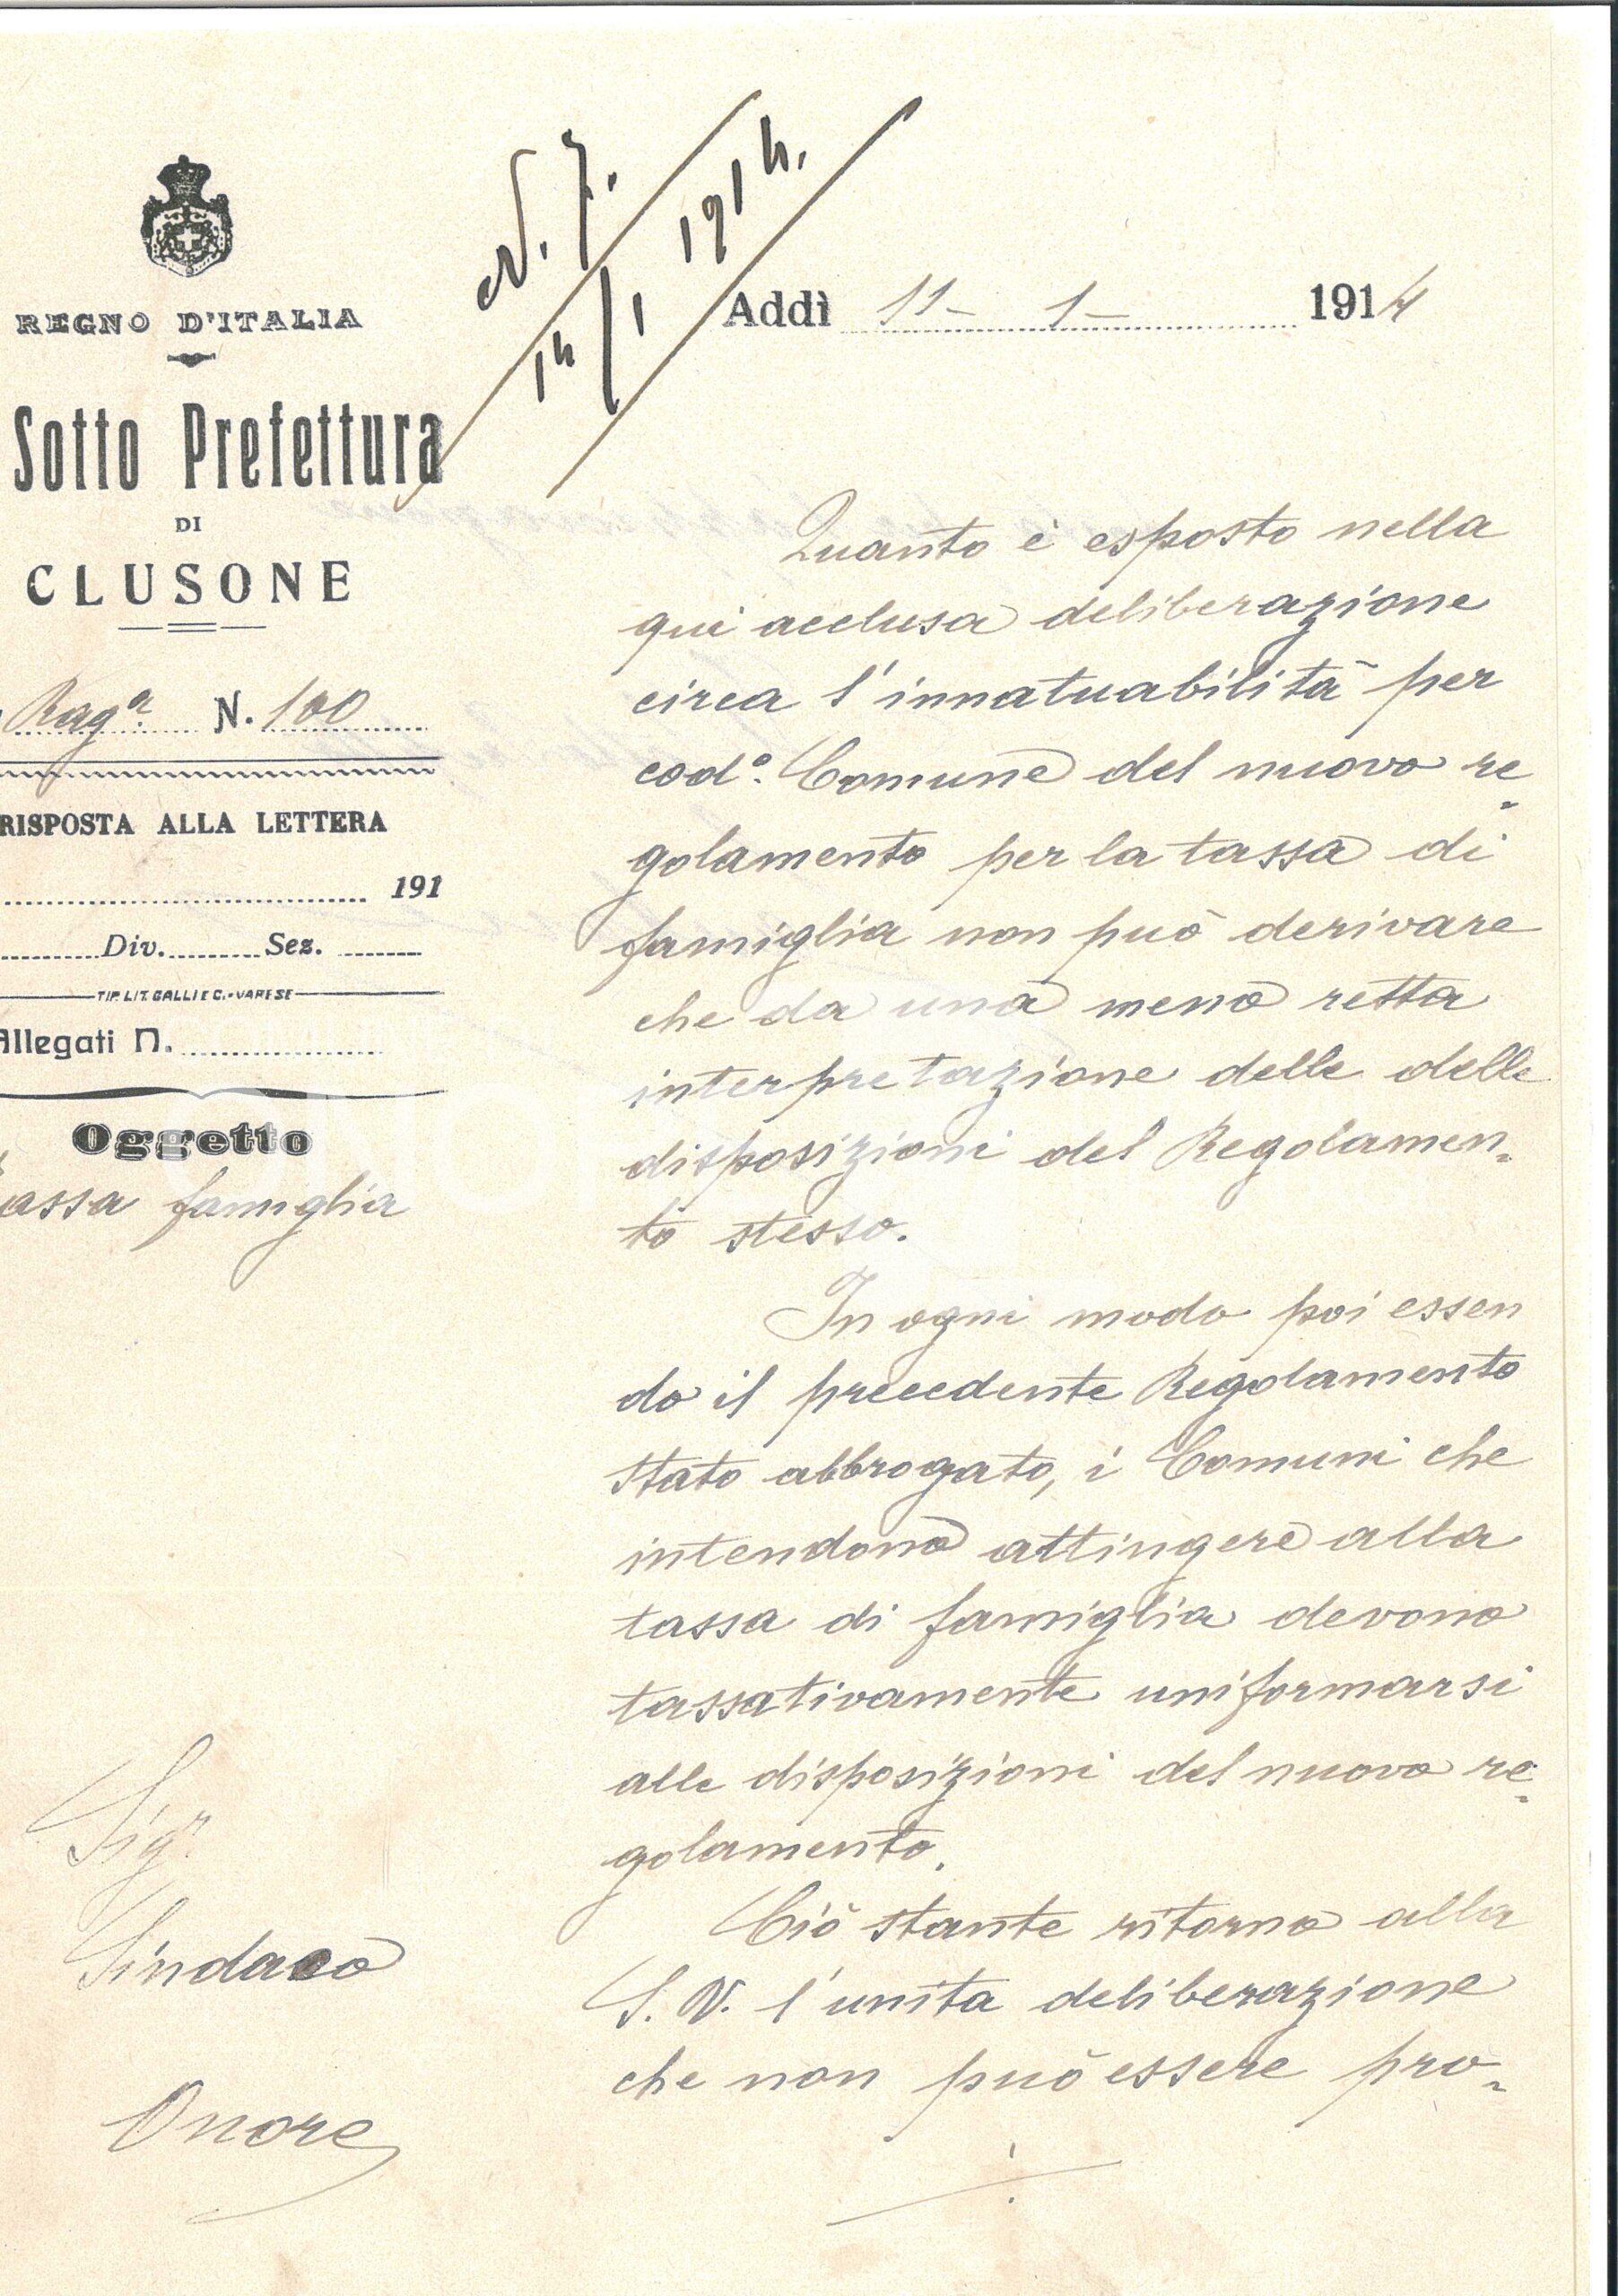 N. 7.
14/1 1914.
REGNO D'ITALIA
Sotto Prefettura
DI
CLUSONE
Addì 11 - 1 - 1914
Rag.ª N. 100
RISPOSTA ALLA LETTERA
191
Div. Sez.
TIP. LIT. GALLI E C. - VARESE
Allegati N.
Oggetto
assa famiglia
Quanto è esposto nella
qui acclusa deliberazione
circa l'innatuabilità per
cod.º Comune del nuovo re-
golamento per la tassa di
famiglia non può derivare
che da una meno retta
interpretazione delle delle
disposizioni del Regolamen-
to stesso.
In ogni modo poi essen
do il precedente Regolamento
stato abbrogato, i Comuni che
intendono attingere alla
tassa di famiglia devono
tassativamente uniformarsi
alle disposizioni del nuovo re-
golamento.
Ciò stante ritorno alla
S. V. l'unita deliberazione
che non può essere pro-
./.
Sigr
Sindaco
Onore